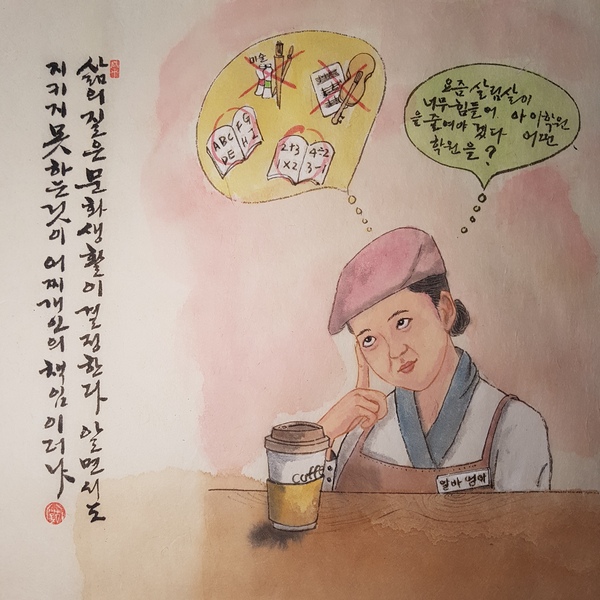 삶의 질은 문화생활이 결정한다 알면서도
지키지 못하는것이 어찌 개인의 책임이더냐
미술
ABC FG
DE H I
2+3 4÷2
×2 3-1
요즘 살림살이
너무 힘들어 아이학원
을 줄여야 겠다 어떤
학원을?
coffe
알바 엄마